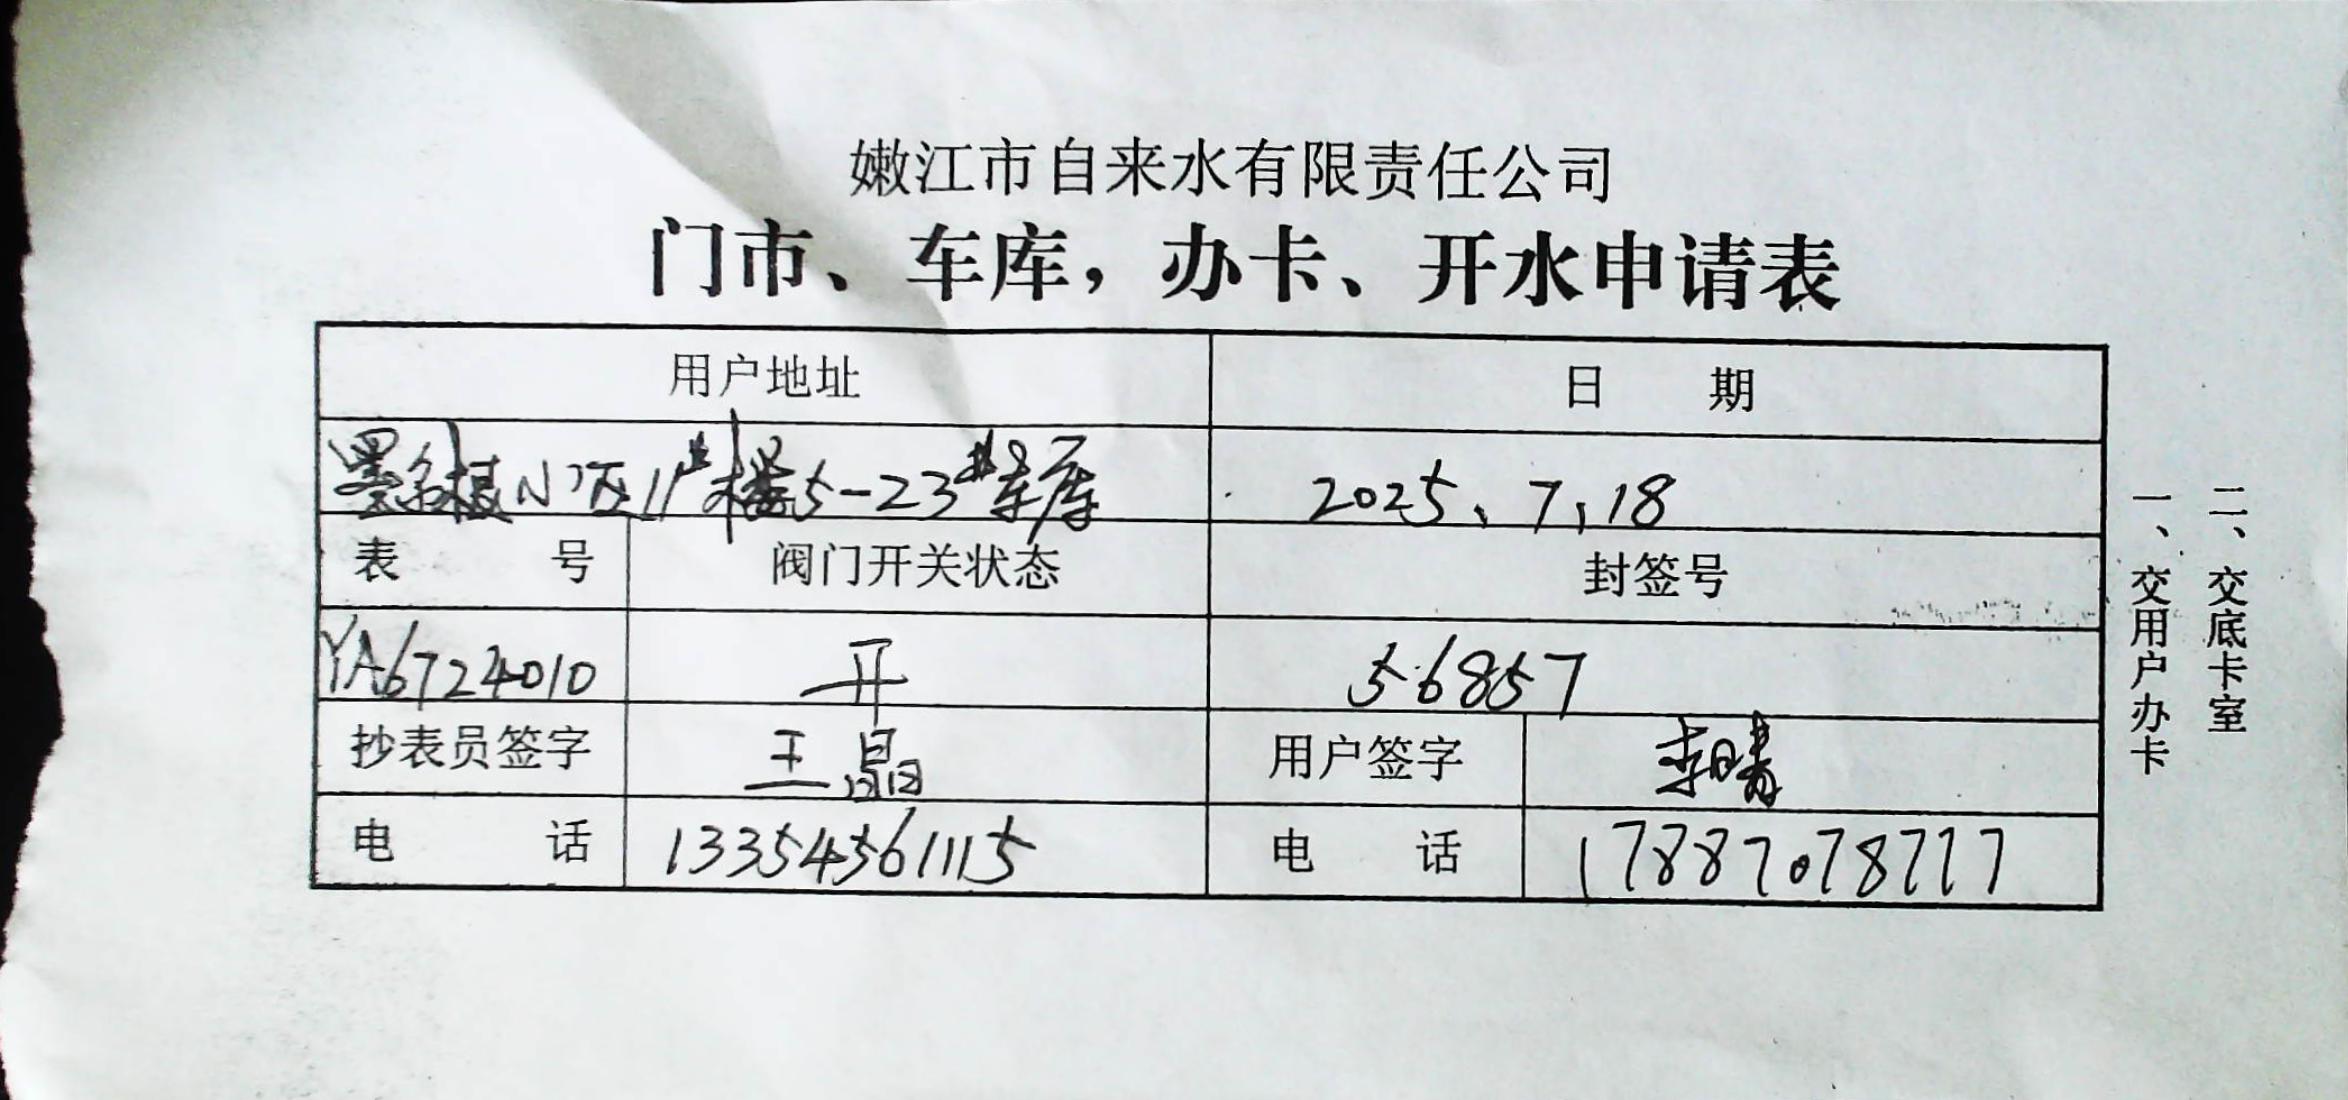 嫩江市自来水有限责任公司
门市、车库，办卡、开水申请表
用户地址 日 期
墨尔根小区11#楼5-23#车库 2025、7、18
表 号 阀门开关状态 封签号
YA6724010 开 56857
抄表员签字 王晶 用户签字 李晴
电 话 13354561115 电 话 17887078777
一、交用户办卡
二、交底卡室